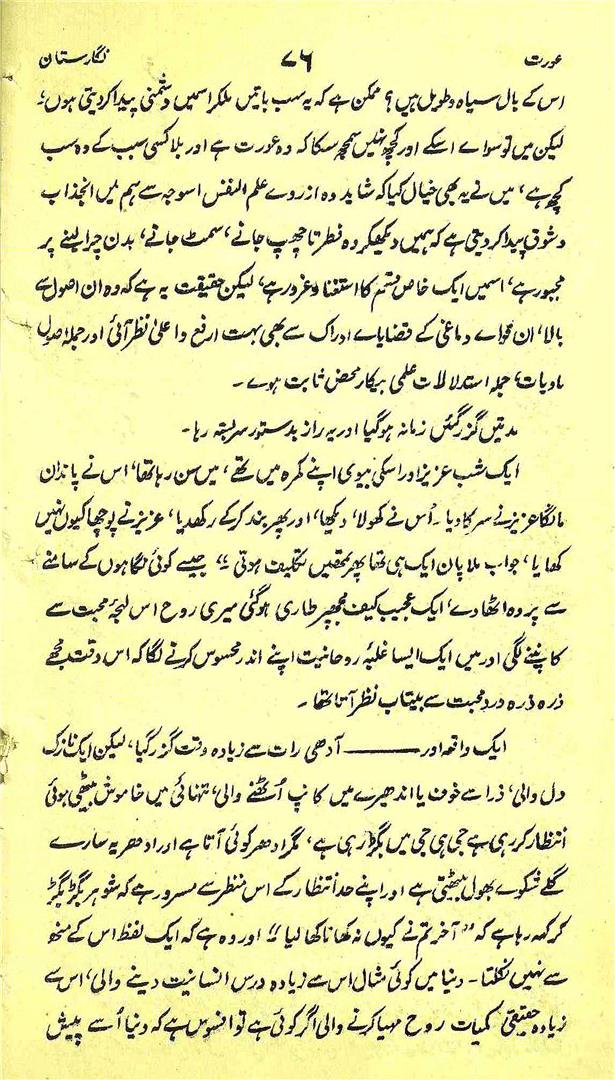 عورت ۷۶ نگارستان
اس کے بال سیاہ و طویل ہیں؟ ممکن ہے کہ یہ سب باتیں ملکر اسمیں دشمنی پیدا کر دیتی ہوں،
لیکن میں تو سواے اسکے اور کچھ نہیں سمجھ سکا کہ وہ عورت ہے اور بلا کسی سبب کے وہ سب
کچھ ہے، میں نے یہ بھی خیال کیا کہ شاید وہ ازروے علم النفس اسوجہ سے ہم میں انجذاب
و شوق پیدا کر دیتی ہے کہ ہمیں دیکھکر وہ فطرتاً چھپ جانے، سمٹ جانے، بدن چرا لینے پر
مجبور ہے، اسمیں ایک خاص قسم کا استغنا و غرور ہے، لیکن حقیقت یہ ہے کہ وہ ان اصول سے
بالا، ان قواے دماغی کے قضایاے ادراک سے بھی بہت ارفع و اعلیٰ نظر آئی اور جملہ اصول
مادیات، جملہ استدلالات علمی بیکار محض ثابت ہوے ۔
مدتیں گزر گئیں زمانہ ہو گیا اور یہ راز بدستور سربستہ رہا ۔
ایک شب عزیز اور اسکی بیوی اپنے کمرہ میں تھے، میں سن رہا تھا، اس نے پاندان
مانگا عزیز نے سرکا دیا ۔ اُس نے کھولا، دیکھا، اور پھر بند کر کے رکھدیا، عزیز نے پوچھا کیوں نہیں
کھایا، جواب ملا پان ایک ہی تھا پھر تمھیں تکلیف ہوتی ‘‘ جیسے کوئی نگاہوں کے سامنے
سے پردہ اٹھا دے، ایک عجیب کیف مجھپر طاری ہو گئی میری روح اس لہجۂ محبت سے
کانپنے لگی اور میں ایک ایسا غلبۂ روحانیت اپنے اندر محسوس کرنے لگا کہ اس وقت مجھے
ذرہ ذرہ درد محبت سے بیتاب نظر آتا تھا ۔
ایک واقعہ اور ——— آدھی رات سے زیادہ وقت گزر گیا، لیکن ایک نازک
دل والی، ذرا سے خوف یا اندھیرے میں کانپ اُٹھنے والی، تنہائی میں خاموش بیٹھی ہوئی
انتظار کر رہی ہے جی ہی جی میں بگڑ رہی ہے، مگر ادھر کوئی آتا ہے اور ادھر یہ سارے
گلے شکوے بھول بیٹھتی ہے اور اپنے حد انتظار کے اس منظر سے مسرور ہے کہ شوہر بگڑ بگڑ
کر کہہ رہا ہے کہ ’’ آخر تم نے کیوں نہ کھانا کھا لیا ‘‘ اور وہ ہے کہ ایک لفظ اس کے منھ
سے نہیں نکلتا ۔ دنیا میں کوئی مثال اس سے زیادہ درس انسانیت دینے والی، اس سے
زیادہ حقیقی کمیات روح مہیا کرنے والی اگر کوئی ہے تو افسوس ہے کہ دنیا اُسے پیش